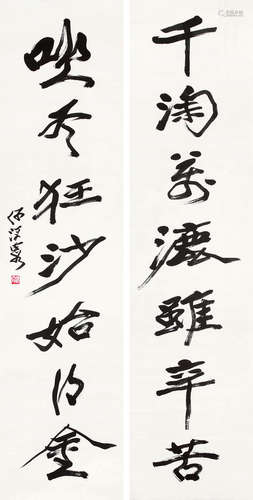 千淘萬漉雖辛苦
吹尽狂沙始金
何海霞